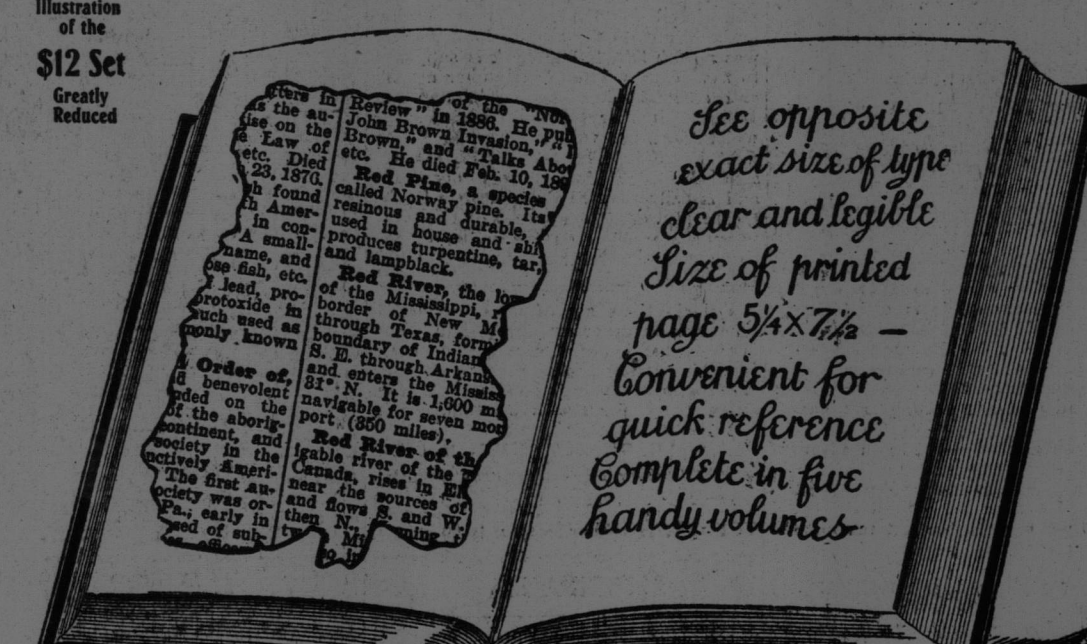 Illustration
of the
$12 Set
Greatly
Reduced
tters in
is the au-
ise on the
e Law of
etc. Died
23, 1876.
h found
h Amer-
in con-
A small-
name, and
ose fish, etc.
lead, pro-
protoxide in
much used as
monly known
Order of,
d benevolent
nded on the
of the aborig-
continent, and
society in the
nctively Ameri-
The first au-
ociety was or-
Pa., early in
sed of sub-
of the "Nor
Review" in 1886. He pub
John Brown Invasion,"
Brown," and "Talks Abo
etc. He died Feb. 10, 189
Red Pine, a species
called Norway pine. Its
resinous and durable,
used in house and shi
produces turpentine, tar,
and lampblack.
Red River, the lo
of the Mississippi,
border of New M
through Texas, form
boundary of Indian
S. E. through Arkans
and enters the Missis
31° N. It is 1,600 m
navigable for seven mo
port (350 miles).
Red River of th
igable river of the
Canada, rises in El
near the sources of
and flows S. and W.
then N.,
See opposite
exact size of type
clear and legible
Size of printed
page 5¼ x 7½ —
Convenient for
quick reference
Complete in five
handy volumes